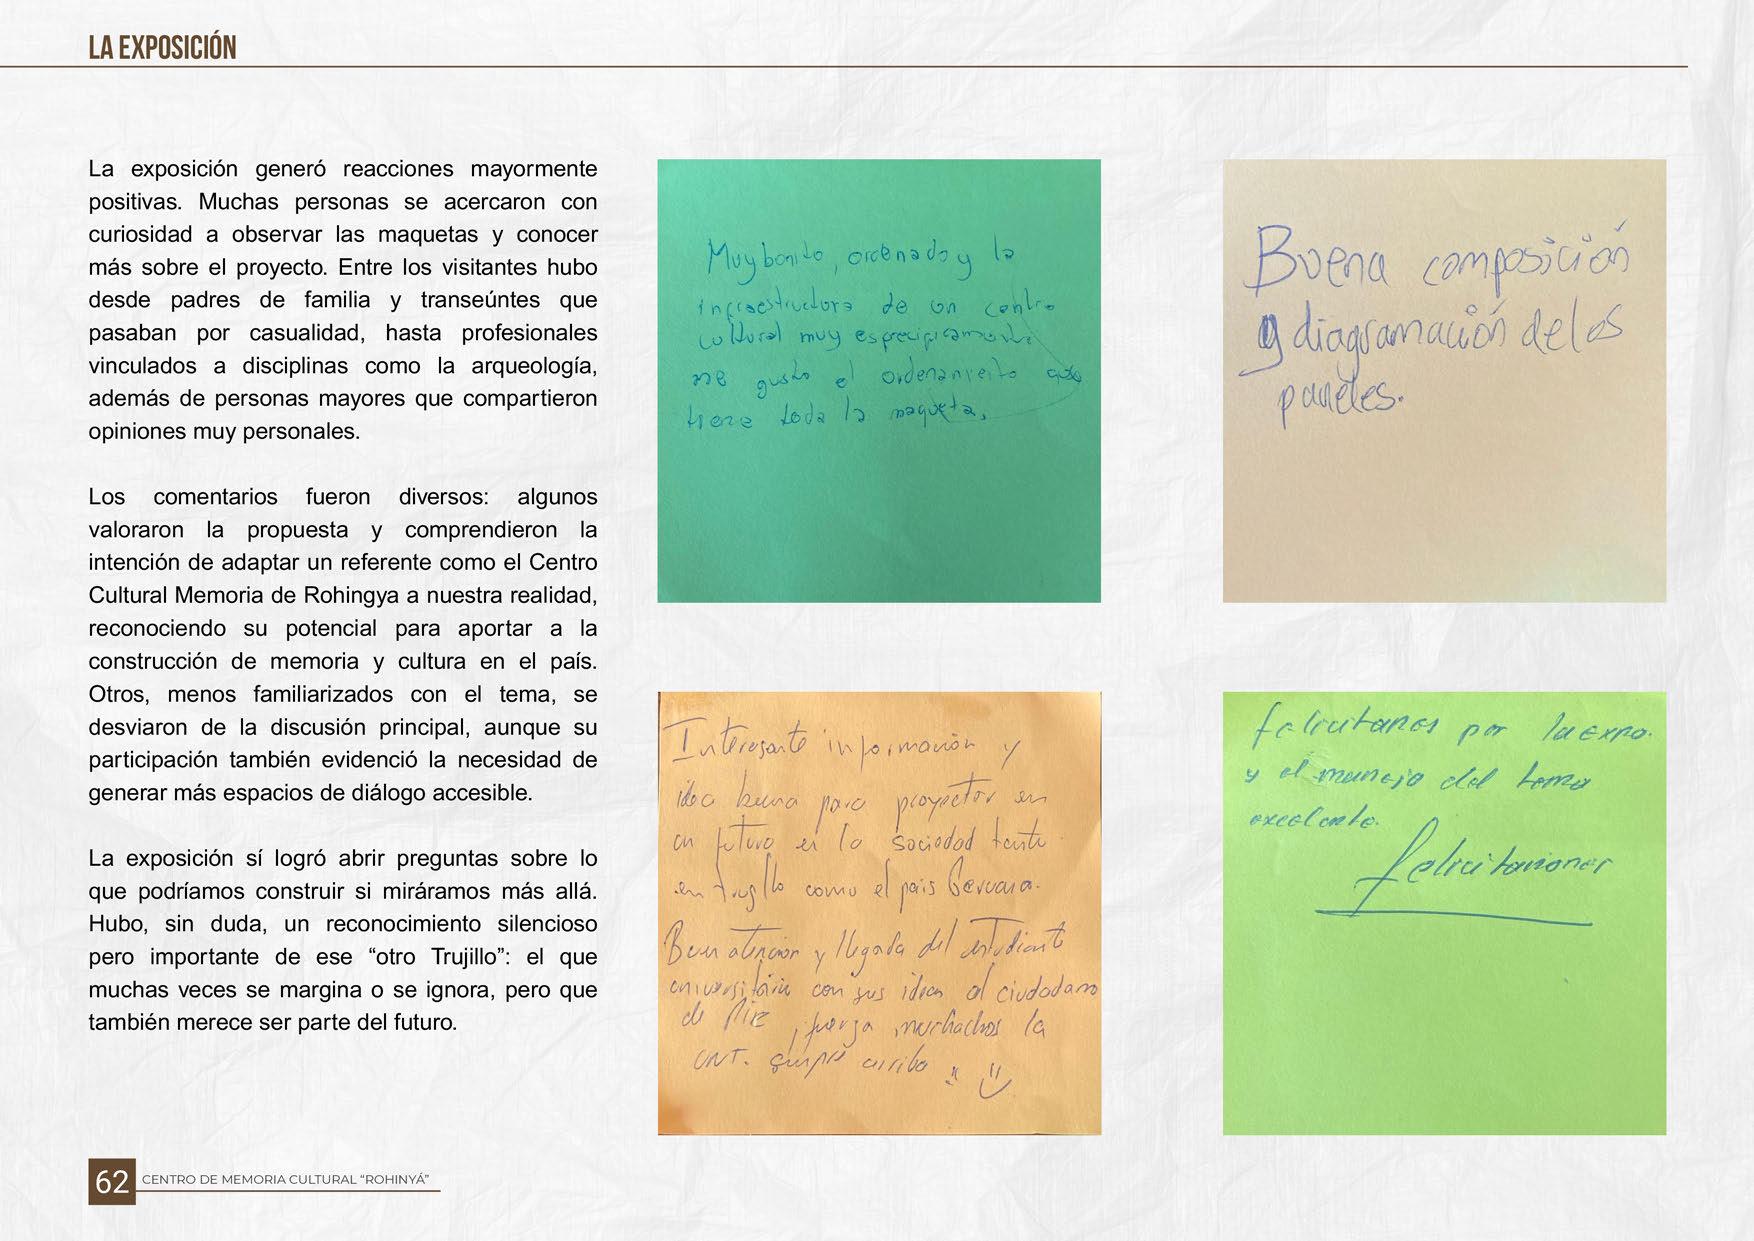 LA EXPOSICIÓN
La exposición generó reacciones mayormente
positivas. Muchas personas se acercaron con
curiosidad a observar las maquetas y conocer
más sobre el proyecto. Entre los visitantes hubo
desde padres de familia y transeúntes que
pasaban por casualidad, hasta profesionales
vinculados a disciplinas como la arqueología,
además de personas mayores que compartieron
opiniones muy personales.
Los comentarios fueron diversos: algunos
valoraron la propuesta y comprendieron la
intención de adaptar un referente como el Centro
Cultural Memoria de Rohingya a nuestra realidad,
reconociendo su potencial para aportar a la
construcción de memoria y cultura en el país.
Otros, menos familiarizados con el tema, se
desviaron de la discusión principal, aunque su
participación también evidenció la necesidad de
generar más espacios de diálogo accesible.
La exposición sí logró abrir preguntas sobre lo
que podríamos construir si miráramos más allá.
Hubo, sin duda, un reconocimiento silencioso
pero importante de ese “otro Trujillo”: el que
muchas veces se margina o se ignora, pero que
también merece ser parte del futuro.
Muy bonito, ordenado y la
infraestructura de un centro
cultural muy especificamente
me gusto el ordenamiento que
tiene toda la maqueta.
Buena composición
y diagramación de los
paneles.
Interesante información y
idea buena para proyectar en
un futuro en la sociedad tanto
en trujillo como el país
Buen atención y llegada del estudiante
universitario con sus ideas al ciudadano
de , fuerza muchachos la
UNT. siempre arriba
felicitarlos por la expo.
y el manejo del tema
excelente.
felicitaciones
62
CENTRO DE MEMORIA CULTURAL “ROHINYÁ”